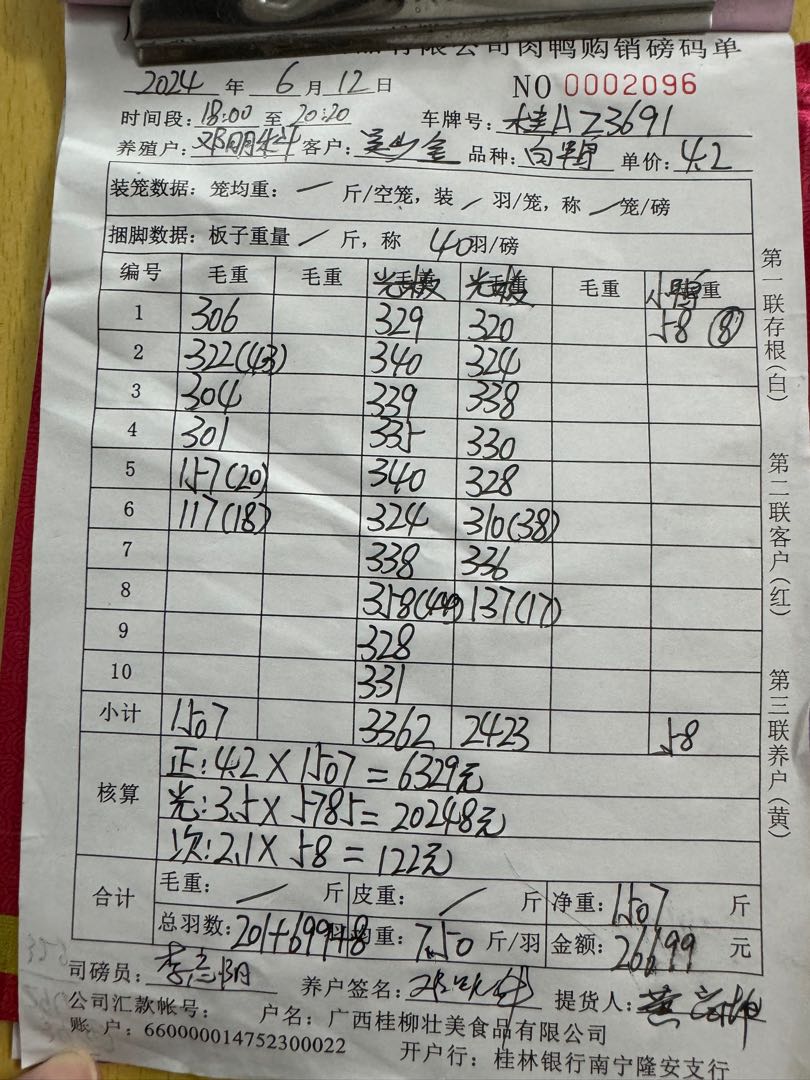 品有限公司肉鸭购销磅码单
2024 年 6 月 12 日 NO 0002096
时间段: 18:00 至 20:20 车牌号: 桂AZ3691
养殖户: 邓明 客户: 吴少金 品种: 白鸭 单价: 4.2
装笼数据: 笼均重: / 斤/空笼, 装 / 羽/笼, 称 / 笼/磅
捆脚数据: 板子重量 / 斤, 称 40 羽/磅
编号 毛重 毛重 光 光 毛重 小鸭 重
1 306 329 320 58 (8)
2 322(43) 340 324
3 304 339 338
4 301 335 330
5 157(20) 340 328
6 117(18) 324 310(38)
7 338 336
8 358(44) 137(17)
9 328
10 331
小计 1507 3362 2423 58
核算 正: 4.2 × 1507 = 6329元
光: 3.5 × 5785 = 20248元
次: 2.1 × 58 = 122元
合计 毛重: / 斤 皮重: / 斤 净重: 1507 斤
总羽数: 201+699+8 均重: 7.50 斤/羽 金额: 26699 元
司磅员: 李 阳 养户签名: 提货人: 黄
公司汇款帐号: 户名: 广西桂柳壮美食品有限公司
账 户: 660000014752300022 开户行: 桂林银行南宁隆安支行
第一联存根(白)
第二联客户(红)
第三联养户(黄)